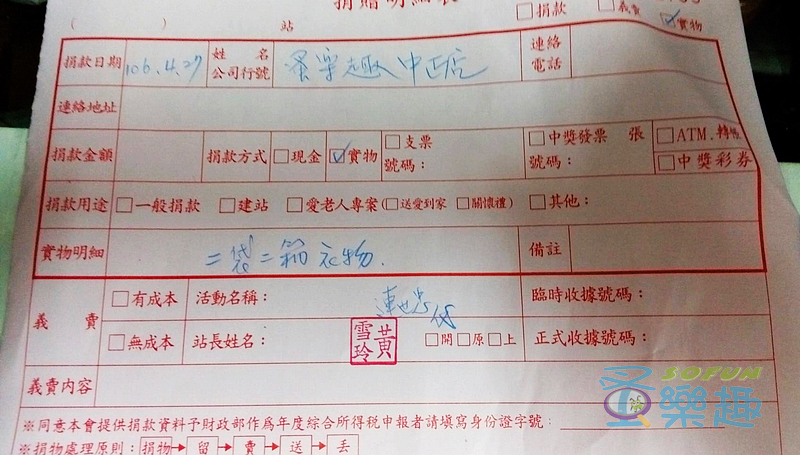 捐贈明細表
(　　　) 站 □捐款 □義賣 ☑實物
捐款日期 106.4.27 姓名 公司行號 蚤樂趣中正店 連絡電話
連絡地址
捐款金額 捐款方式 □現金 ☑實物 □支票 號碼： □中獎發票 張 號碼： □ATM.轉帳 □中獎彩券
捐款用途 □一般捐款 □建站 □愛老人專案(□送愛到家 □關懷禮) □其他：
實物明細 二袋二箱衣物. 備註
義賣 □有成本 活動名稱： 臨時收據號碼：
□無成本 站長姓名： 黃雪玲 代 □開□原□上 正式收據號碼：
義賣内容
SOFUN
蚤樂趣
※同意本會提供捐款資料予財政部作為年度綜合所得稅申報者請填寫身份證字號：
※捐物處理原則：捐物→留→賣→送→丟